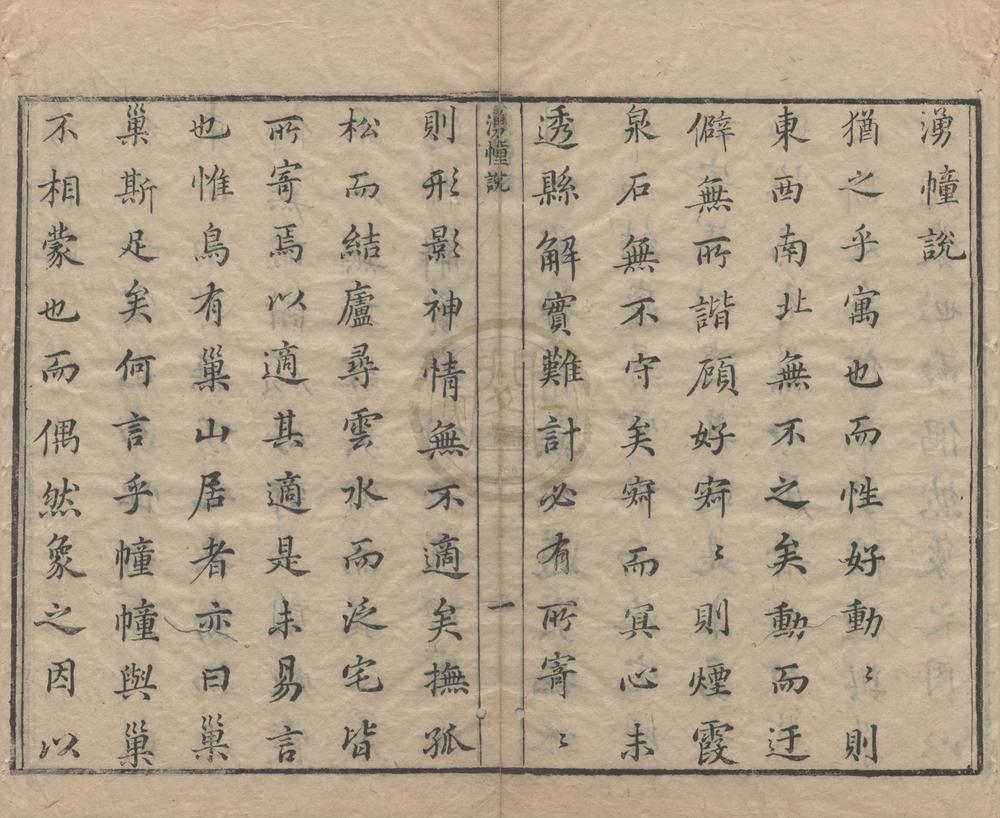 湧幢說
猶之乎寓也而性好動〻則
東西南北無不之矣動而迂
僻無所諧顧好㝥〻則煙霞
泉石無不守矣㝥而冥心未
透縣解實難計必有所寄〻
湧幢說
一
則形影神情無不適矣撫孤
松而結廬尋雲水而泛宅皆
所寄焉以適其適是未易言
也惟鳥有巢山居者亦曰巢
巢斯足矣何言乎幢幢與巢
不相蒙也而偶然象之因以